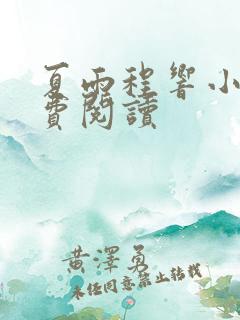 夏雨程響小
費閱讀
黃澤勇
未經同意禁止轉載